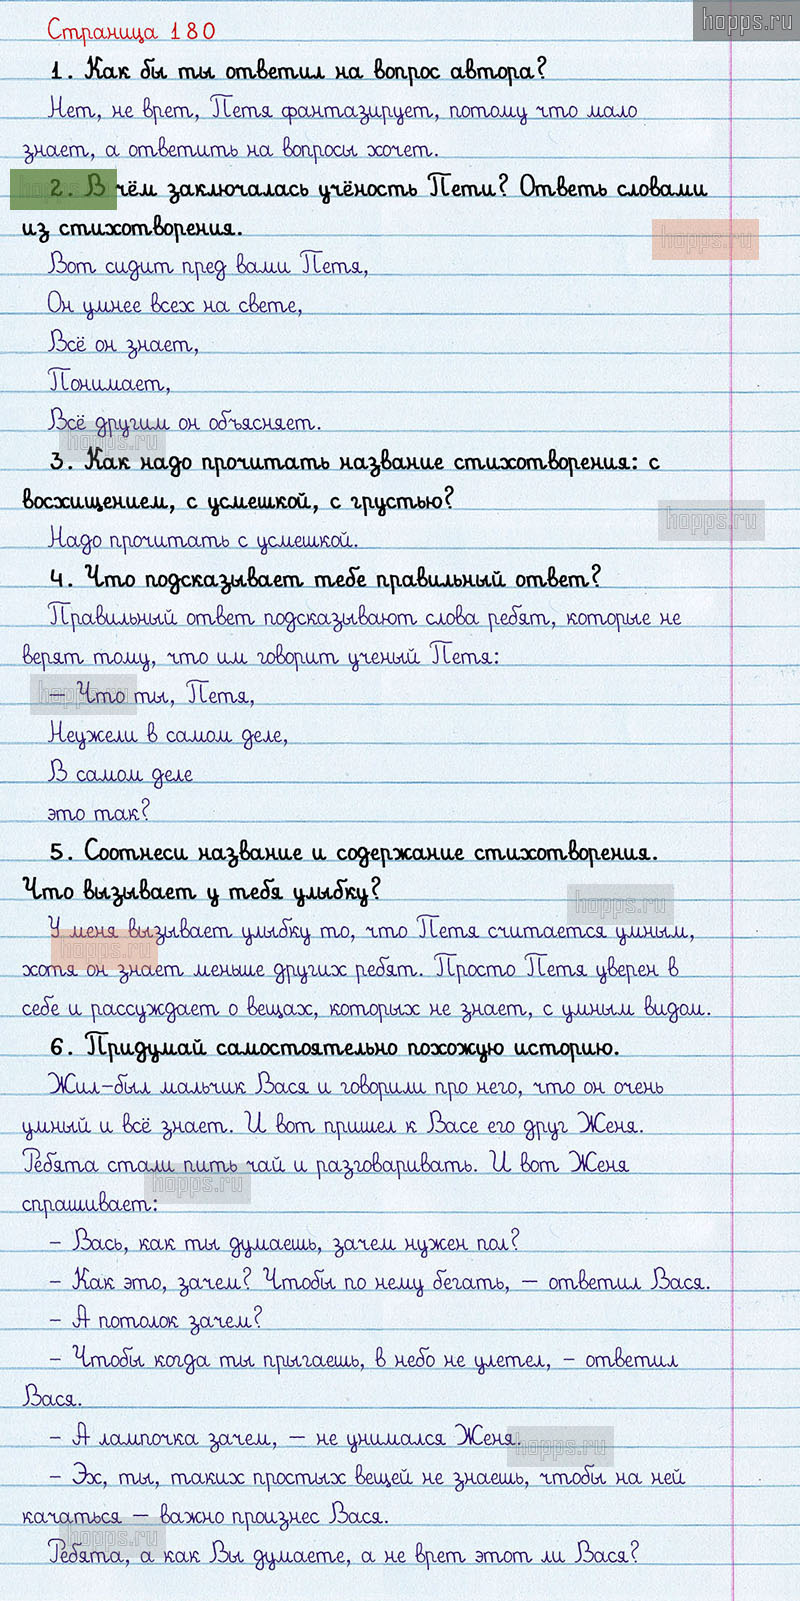 hopps.ru
Страница 180
1. Как бы ты ответил на вопрос автора?
Нет, не врет, Петя фантазирует, потому что мало
знает, а ответить на вопросы хочет.
2. В чём заключалась учёность Пети? Ответь словами
из стихотворения.
hopps.ru
Вот сидит пред вами Петя,
Он умнее всех на свете,
Всё он знает,
Понимает,
Всё другим он объясняет.
hopps.ru
3. Как надо прочитать название стихотворения: с
восхищением, с усмешкой, с грустью?
hopps.ru
Надо прочитать с усмешкой.
4. Что подсказывает тебе правильный ответ?
Правильный ответ подсказывают слова ребят, которые не
верят тому, что им говорит ученый Петя:
hopps.ru
– Что ты, Петя,
Неужели в самом деле,
В самом деле
это так?
5. Соотнеси название и содержание стихотворения.
Что вызывает у тебя улыбку?
hopps.ru
У меня вызывает улыбку то, что Петя считается умным,
hopps.ru
хотя он знает меньше других ребят. Просто Петя уверен в
себе и рассуждает о вещах, которых не знает, с умным видом.
6. Придумай самостоятельно похожую историю.
Жил-был мальчик Вася и говорили про него, что он очень
умный и всё знает. И вот пришел к Васе его друг Женя.
Ребята стали пить чай и разговаривать. И вот Женя
hopps.ru
спрашивает:
– Вась, как ты думаешь, зачем нужен пол?
– Как это, зачем? Чтобы по нему бегать, – ответил Вася.
– А потолок зачем?
– Чтобы когда ты прыгаешь, в небо не улетел, – ответил
Вася.
– А лампочка зачем, – не унимался Женя.
hopps.ru
– Эх, ты, таких простых вещей не знаешь, чтобы на ней
качаться – важно произнес Вася.
hopps.ru
Ребята, а как Вы думаете, а не врет этот ли Вася?